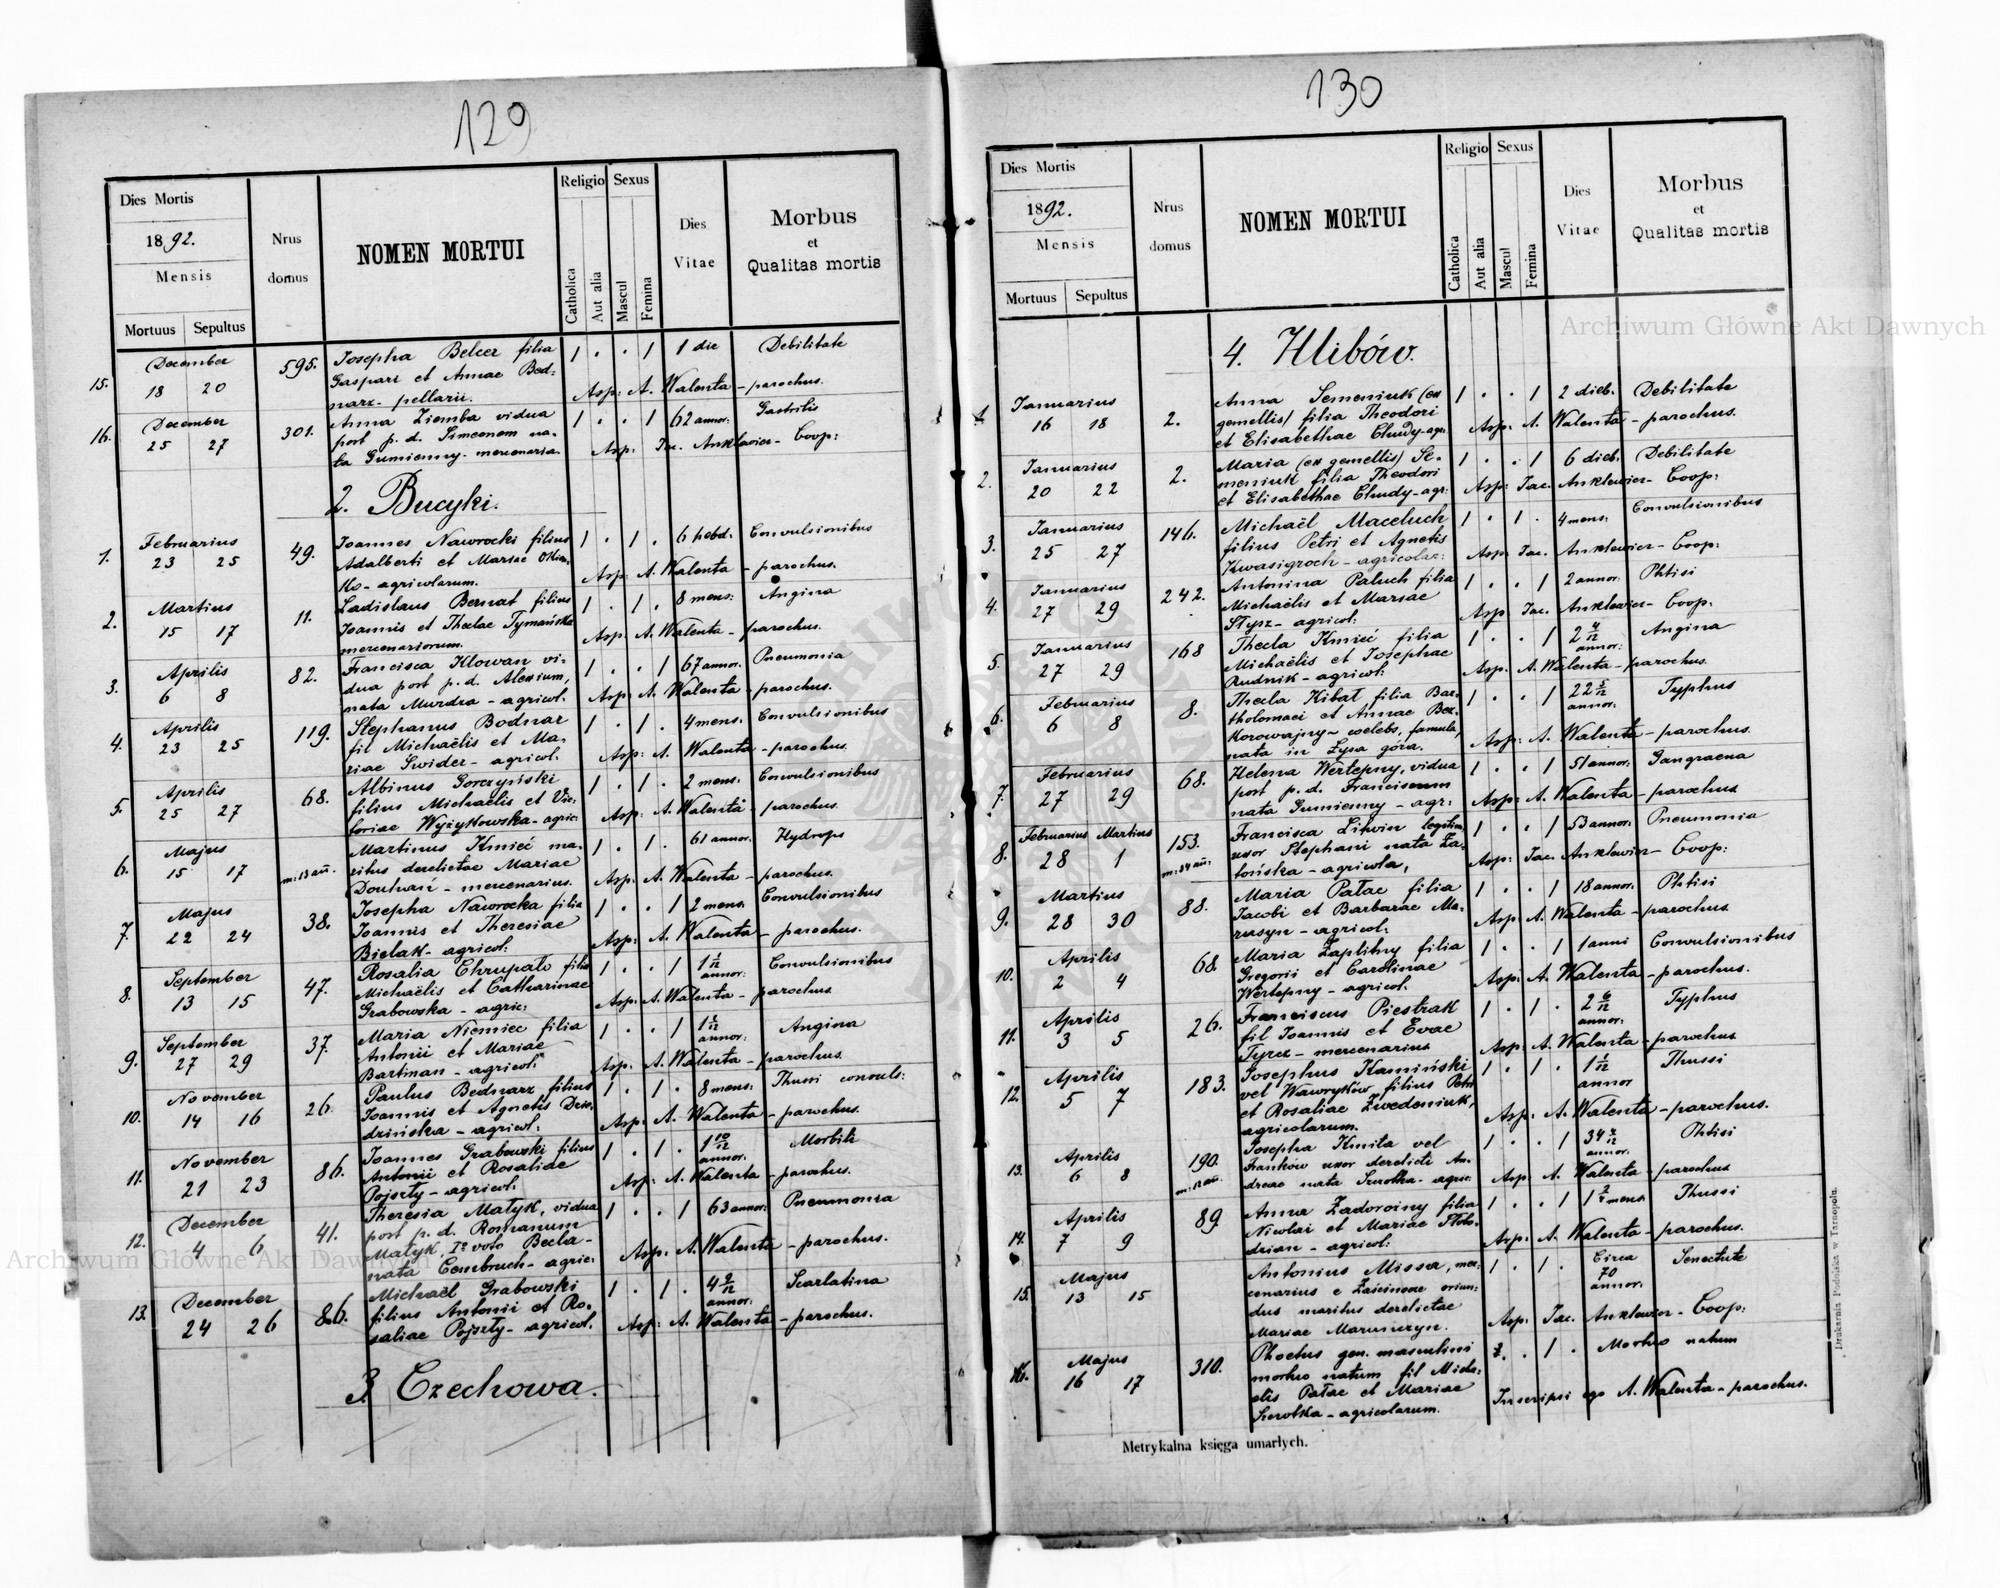 129
Dies Mortis
1892.
Mensis
Mortuus Sepultus
Nrus domus
NOMEN MORTUI
Religio Sexus
Catholica Aut alia Mascul Femina
Dies Vitae
Morbus
et
Qualitas mortis
December 595. Josepha Belcer filia 1 . . 1 1 die Debilitate
15. 18 20 Gaspari et Annae Bed-
narz - pellarii. Asp: A. Walenta - parochus.
December 301. Anna Ziemba vidua 1 . . 1 62 annor: Gastritis
16. 25 27 post p. d. Simeonem na-
ta Gumienny - mercenaria. Asp: Jac. Anklewicz - Coop:
2. Bucyki.
Februarius 49. Joannes Nawrocki filius 1 . 1 . 6 hebd. Convulsionibus
1. 23 25 Adalberti et Mariae
ko - agricolarum. Asp: A. Walenta - parochus.
Martius 11. Ladislaus Bernat filius 1 . 1 . 8 mens: Angina
2. 15 17 Joannis et Theclae Tymańska
mercenariorum. Asp: A. Walenta - parochus.
Aprilis 82. Francisca Klowan vi- 1 . . 1 67 annor. Pneumonia
3. 6 8 dua post p. d. Alexium,
nata Murdza - agricol. Asp: A. Walenta - parochus.
Aprilis 119. Stephanus Bodnar 1 . 1 . 4 mens. Convulsionibus
4. 23 25 fil Michaëlis et Ma-
riae Swider - agricol. Asp: A. Walenta - parochus.
Aprilis 68. Albinus Gorczyński 1 . 1 . 2 mens. Convulsionibus
5. 25 27 filius Michaëlis et Vic-
toriae Wyżykowska - agric: Asp: A. Walenta - parochus.
Majus Martinus Kmieć ma- 1 . 1 . 61 annor. Hydrops
6. 15 17 m: 13 an. ritus derelictae Mariae
Douhań - mercenarius. Asp: A. Walenta - parochus.
Majus 38. Josepha Nawrocka filia 1 . . 1 2 mens. Convulsionibus
7. 22 24 Joannis et Theresiae
Bielak - agricol: Asp: A. Walenta - parochus.
September 47. Rosalia Chrupało filia 1 . . 1 annor: Convulsionibus
8. 13 15 Michaëlis et Catharinae
Grabowska - agric: Asp: A. Walenta - parochus.
September 37. Maria Niemiec filia 1 . . 1 annor: Angina
9. 27 29 Antonii et Mariae
Bartman - agricol: Asp: A. Walenta - parochus.
November 26. Paulus Bednarz filius 1 . 1 . 8 mens: Thussi convuls:
10. 14 16 Joannis et Agnetis Dzie-
dzińska - agricol: Asp: A. Walenta - parochus.
November 86. Joannes Grabowski filius 1 . 1 . 1 10/12 annor. Morbili
11. 21 23 Antonii et Rosaliae
Pojszty - agricol: Asp: A. Walenta - parochus.
December 41. Theresia Matyk, vidua 1 . . 1 63 annor: Pneumonia
12. 4 6 post p. d. Romanum
Matyk, Iº voto Becla -
nata Cembruch - agric: Asp: A. Walenta - parochus.
December 86. Michaël Grabowski 1 . 1 . 4 9/12 annor: Scarlatina
13. 24 26 filius Antonii et Ro-
saliae Pojszty - agricol. Asp: A. Walenta - parochus.
3. Czechowa.
130
Dies Mortis
1892.
Mensis
Mortuus Sepultus
Nrus domus
NOMEN MORTUI
Religio Sexus
Catholica Aut alia Mascul Femina
Dies Vitae
Morbus
et
Qualitas mortis
4. Hlibów.
Januarius 2. Anna Semeniuk (ex 1 . . 1 2 dieb. Debilitate
1. 16 18 gemellis) filia Theodori
et Elisabethae Chudy - agr: Asp: A. Walenta - parochus.
Januarius 2. Maria (ex gemellis) Se- 1 . . 1 6 dieb. Debilitate
2. 20 22 meniuk filia Theodori
et Elisabethae Chudy - agr: Asp: Jac. Anklewicz - Coop:
Januarius 146. Michaël Maceluch 1 . 1 . 4 mens: Convulsionibus
3. 25 27 filius Petri et Agnetis
Kwasigroch - agricolar: Asp: Jac. Anklewicz - Coop:
Januarius 242. Antonina Paluch filia 1 . . 1 2 annor: Phtisi
4. 27 29 Michaëlis et Mariae
Stypz - agricol: Asp: Jac. Anklewicz - Coop:
Januarius 168 Thecla Kmieć filia 1 . . 1 2 4/12 annor: Angina
5. 27 29 Michaëlis et Josephae
Rudnik - agricol: Asp: A. Walenta - parochus.
Februarius 8. Thecla Kibał filia Bar- 1 . . 1 22 5/12 annor: Typhus
6. 6 8 tholomaei et Annae Bez-
korowajny - coelebs, famula,
nata in Łysa góra. Asp: A. Walenta - parochus.
Februarius 68. Helena Wertepny, vidua 1 . . 1 51 annor: Gangraena
7. 27 29 post p. d. Franciscum
nata Gumienny - agr: Asp: A. Walenta - parochus
Februarius Martius 153. Francisca Litwin legitim. 1 . . 1 53 annor: Pneumonia
8. 28 1 m: 34 an: uxor Stephani nata Za-
tońska - agricola, Asp: Jac. Anklewicz - Coop:
Martius 88. Maria Pałac filia 1 . . 1 18 annor. Phtisi
9. 28 30 Jacobi et Barbarae Ma-
rusyn - agricol: Asp: A. Walenta - parochus
Aprilis 68. Maria Zaplitny filia 1 . . 1 1 anni Convulsionibus
10. 2 4 Gregorii et Carolinae
Wertepny - agricol. Asp: A. Walenta - parochus.
Aprilis 26. Franciscus Piestrak 1 . 1 . 2 6/12 annor: Typhus
11. 3 5 fil Joannis et Evae
Tyrcz - mercenarius Asp: A. Walenta - parochus.
Aprilis 183. Josephus Kamiński 1 . 1 . annor Thussi
12. 5 7 vel Wawryków filius Petri
et Rosaliae Zwedeniuk,
agricolarum. Asp: A. Walenta - parochus.
Aprilis 190. Josepha Kmita vel 1 . . 1 34 annor. Phtisi
13. 6 8 Franków uxor derelicti An-
dreae nata Szwotka - agric: Asp: A. Walenta - parochus
Aprilis 89 Anna Zadoroiny filia 1 . . 1 mens Thussi
14. 7 9 Nicolai et Mariae Sloho-
dzian - agricol: Asp: A. Walenta - parochus.
Majus Antonius Missa, mer- 1 . 1 . Circa 70 annor: Senectute
15. 13 15 cenarius e Zaścinocze oriun-
dus maritus derelictae
Mariae Marunczyn. Asp: Jac. Anklewicz - Coop:
Majus 310. Phoetus gen. masculini . 1 . Mortuo natum
16. 16 17 mortuo natum fil Micha-
elis Pałac et Mariae
Szwotka - agricolarum. Inscripsi ego A. Walenta - parochus.
Metrykalna księga umarłych.
Drukarnia Podolska w Tarnopolu.
Archiwum Główne Akt Dawnych
Archiwum Główne Akt Dawnych